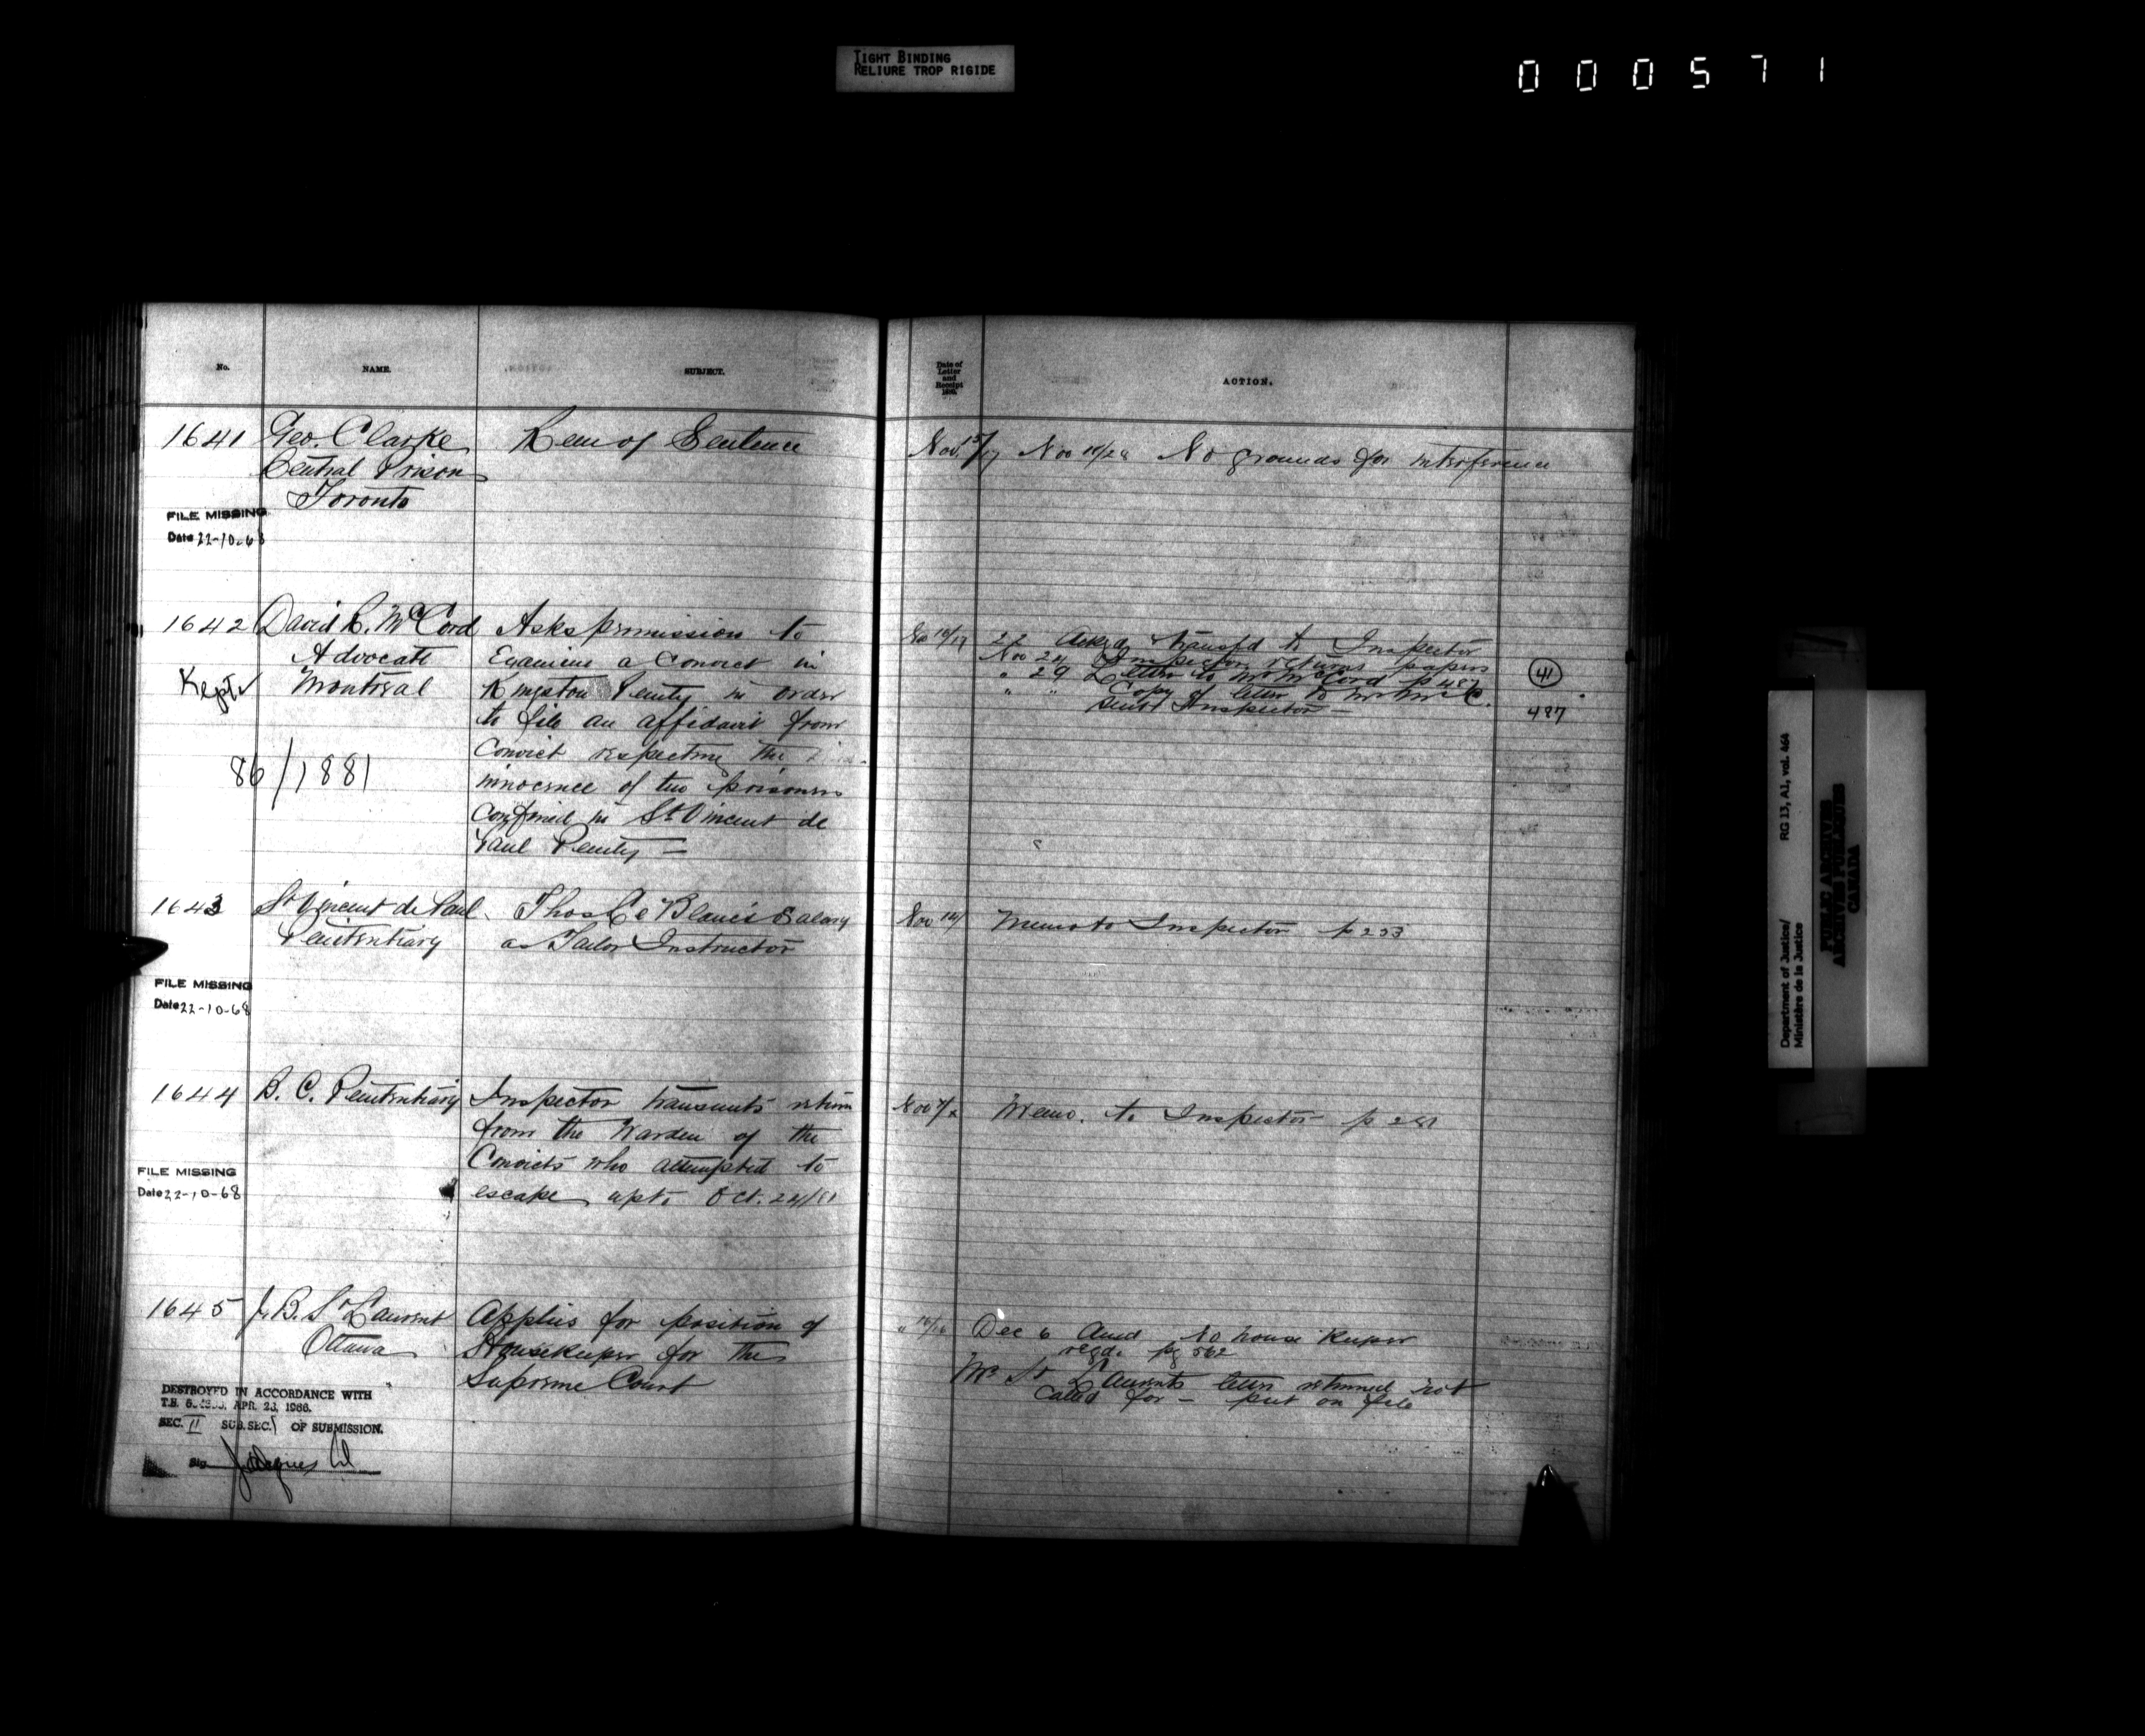 TIGHT BINDING
RELIURE TROP RIGIDE
000571
No.
NAME.
SUBJECT.
Date of
Letter
and
Receipt
ACTION.
1641 Geo. Clarke Rem of Sentence
Central Prison
Toronto
Nov. 15/17 Nov No grounds for interference
FILE MISSING
Date 22-10-68
1642 David R. McCord Asks permission to
Advocate Examine a Convict in
Montreal Kingston Penity in order
Kept
to file an affidavit from
Convict respecting the
innocence of two prisoners
confined in St Vincent de
Paul Penity —
86/1881
22 Acked & transfd to Inspector
Nov 24 Inspector returns papers
" 29 Letter to Mr McCord p 487
" " Copy of letter to Mr McC.
sent Inspector —
41
487
1643 St Vincent de Paul Thos Le Blanc's Salary
Penitentiary as Tailor Instructor
Memo to Inspector
FILE MISSING
Date 22-10-68
1644 B. C. Penitentiary Inspector transmits return
from the Warden of the
Convicts who attempted to
escape Oct. 24/81
Memo. to Inspector
FILE MISSING
Date 22-10-68
1645 J. B. St Laurent Applies for position of
Ottawa Housekeeper for the
Supreme Court
Dec 6 No house keeper
reqd. pg 562
Mr St Laurents letter returned not
called for — put on file
DESTROYED IN ACCORDANCE WITH
T.B. APR. 23, 1966.
SEC. II SUB.SEC. OF SUBMISSION.
Sig.
Department of Justice/
Ministère de la Justice
RG 13, A1, vol. 464
PUBLIC ARCHIVES
ARCHIVES PUBLIQUES
CANADA